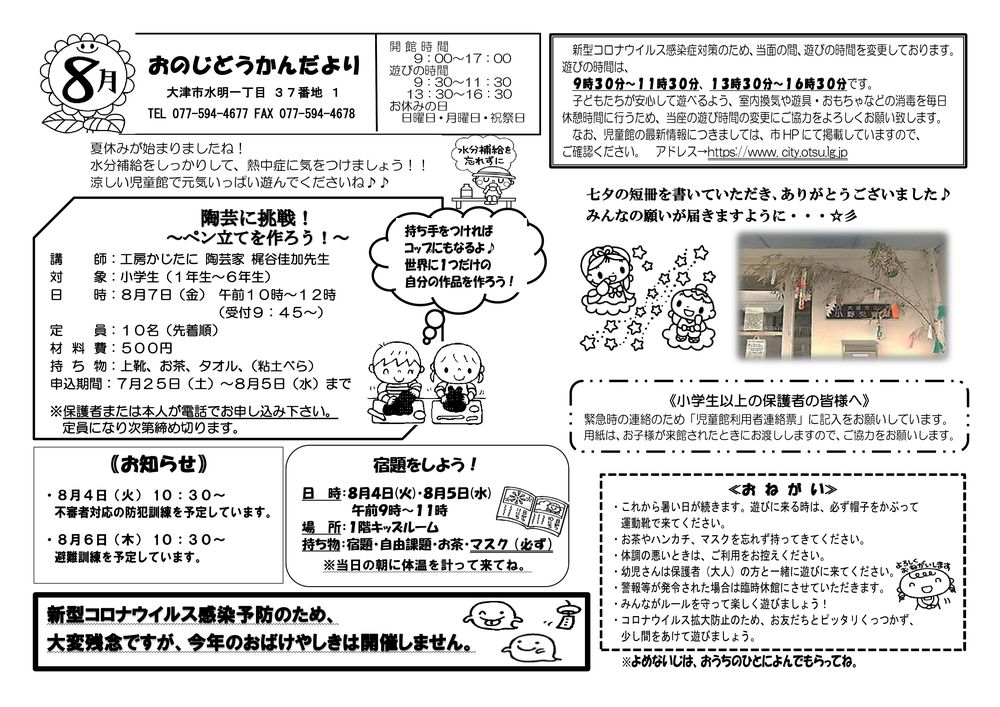 8月
おのじどうかんだより
大津市水明一丁目 37番地 1
TEL 077-594-4677 FAX 077-594-4678
開館時間
9：00～17：00
遊びの時間
9：30～11：30
13：30～16：30
お休みの日
日曜日・月曜日・祝祭日
新型コロナウイルス感染症対策のため、当面の間、遊びの時間を変更しております。
遊びの時間は、
9時30分～11時30分、13時30分～16時30分です。
子どもたちが安心して遊べるよう、室内換気や遊具・おもちゃなどの消毒を毎日
休憩時間に行うため、当座の遊び時間の変更にご協力をよろしくお願い致します。
なお、児童館の最新情報につきましては、市HPにて掲載していますので、
ご確認ください。 アドレス→https://www.city.otsu.lg.jp
夏休みが始まりましたね！
水分補給をしっかりして、熱中症に気をつけましょう！！
涼しい児童館で元気いっぱい遊んでくださいね♪♪
水分補給を
忘れずに
陶芸に挑戦！
～ペン立てを作ろう！～
講 師：工房かじたに 陶芸家 梶谷佳加先生
対 象：小学生（1年生～6年生）
日 時：8月7日（金） 午前10時～12時
（受付9：45～）
定 員：10名（先着順）
材 料 費：500円
持 ち 物：上靴、お茶、タオル、（粘土べら）
申込期間：7月25日（土）～8月5日（水）まで
※保護者または本人が電話でお申し込み下さい。
定員になり次第締め切ります。
持ち手をつければ
コップにもなるよ♪
世界に1つだけの
自分の作品を作ろう！
七夕の短冊を書いていただき、ありがとうございました♪
みんなの願いが届きますように・・・☆彡
小野児童館
《小学生以上の保護者の皆様へ》
緊急時の連絡のため「児童館利用者連絡票」に記入をお願いしています。
用紙は、お子様が来館されたときにお渡ししますので、ご協力をお願いします。
《お知らせ》
・8月4日（火） 10：30～
不審者対応の防犯訓練を予定しています。
・8月6日（木） 10：30～
避難訓練を予定しています。
宿題をしよう！
日 時：8月4日(火)・8月5日(水)
午前9時～11時
場 所：1階キッズルーム
持ち物：宿題・自由課題・お茶・マスク（必ず）
※当日の朝に体温を計って来てね。
≪おねがい≫
・これから暑い日が続きます。遊びに来る時は、必ず帽子をかぶって
運動靴で来てください。
・お茶やハンカチ、マスクを忘れず持ってきてください。
・体調の悪いときは、ご利用をお控えください。
・幼児さんは保護者（大人）の方と一緒に遊びに来てください。
・警報等が発令された場合は臨時休館にさせていただきます。
・みんながルールを守って楽しく遊びましょう！
・コロナウイルス拡大防止のため、お友だちとピッタリくっつかず、
少し間をあけて遊びましょう。
よろしく
おねがいします
※よめないじは、おうちのひとによんでもらってね。
新型コロナウイルス感染予防のため、
大変残念ですが、今年のおばけやしきは開催しません。